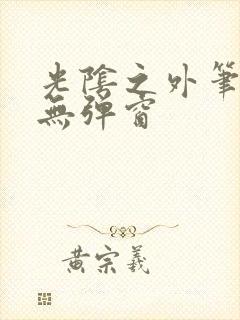 光陰之外筆
無彈窗
黃宗羲